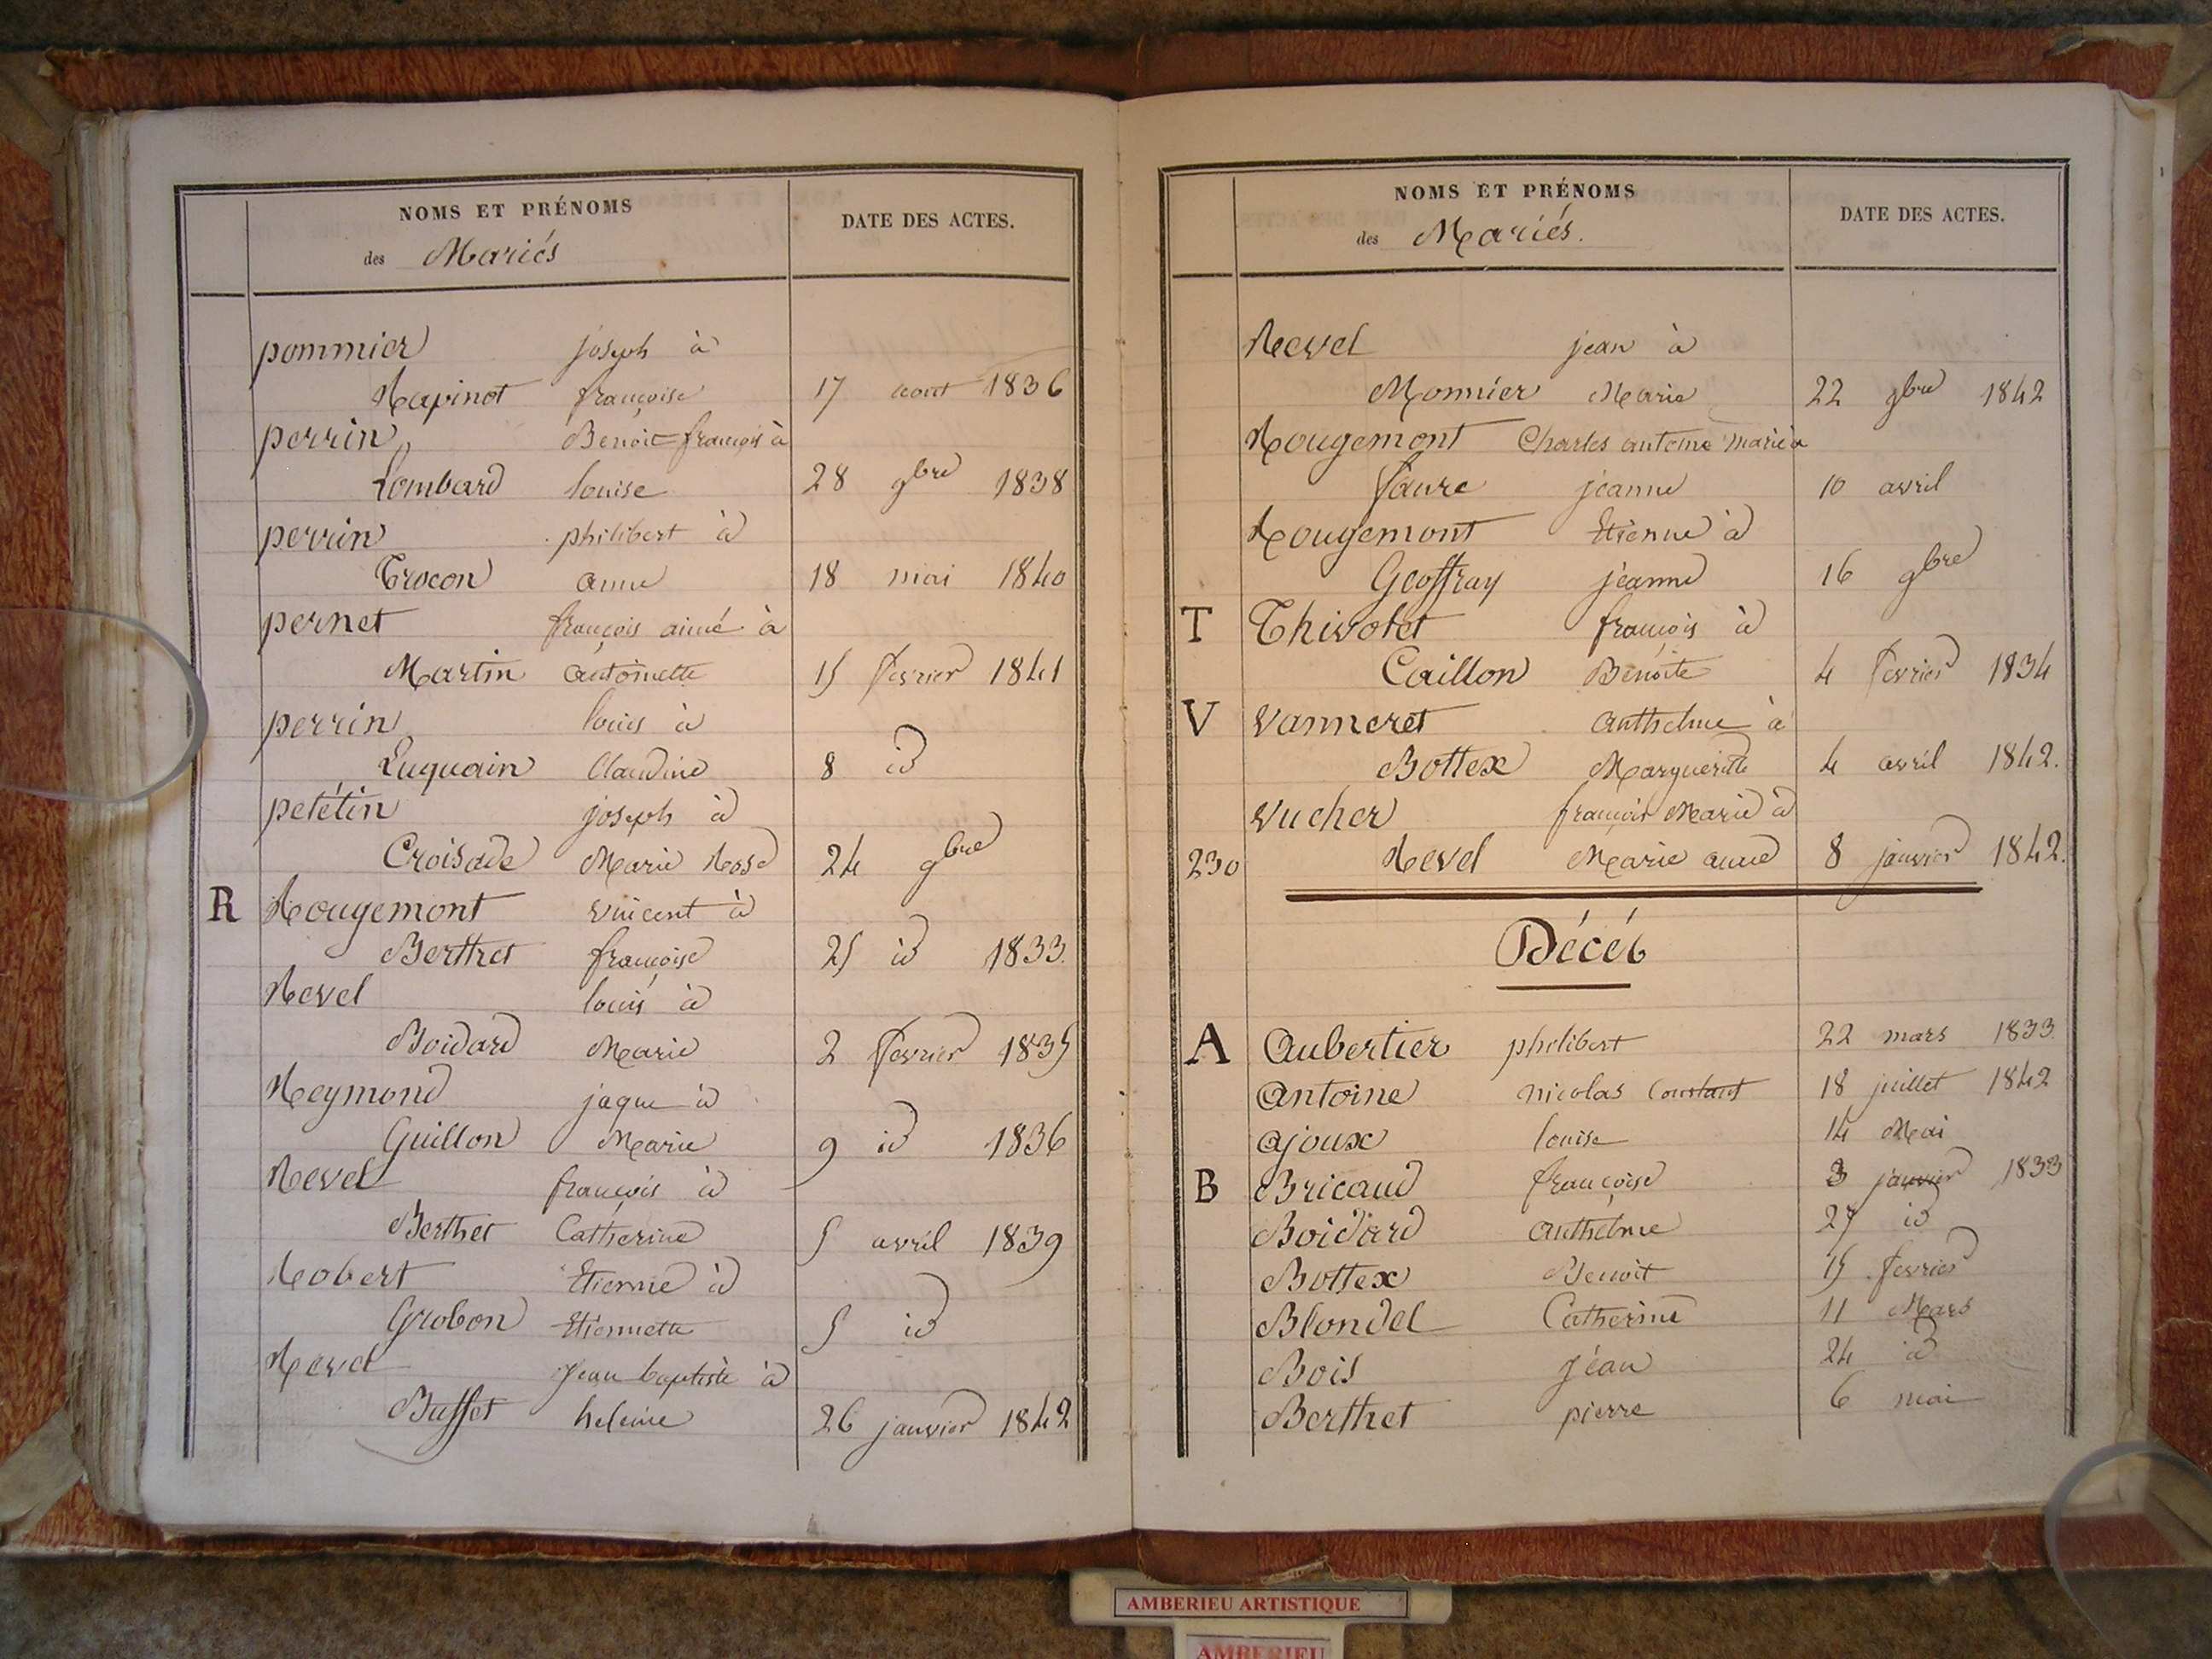 NOMS ET PRÉNOMS
des Mariés
DATE DES ACTES.
pommier joseph à
Rapinot françoise 17 aout 1836
perrin Benoit françois à
Lombard louise 28 9bre 1838
perrin philibert à
Trocon anne 18 mai 1840
pernet françois aimé à
Martin antoinette 15 fevrier 1841
perrin louis à
Luquain Claudine 8 id
petétin joseph à
Croisade Marie Rose 24 9bre
R Rougemont vincent à
Berthet françoise 25 id 1833.
Revel louis à
Boidard Marie 2 fevrier 1835
Reymond jaque à
Guillon Marie 9 id 1836
Revel françois à
Berthet Catherine 5 avril 1839
Robert Etienne à
Grobon Etiennette 5 id
Revel Jean baptiste à
Buffet heleine 26 janvier 1842
NOMS ET PRÉNOMS
des Mariés.
DATE DES ACTES.
Revel jean à
Monnier Marie 22 9bre 1842
Rougemont Charles antoine marie à
faure jeanne 10 avril
Rougemont Etienne à
Geoffray jeanne 16 9bre
T Thivolet françois à
Caillon Benoite 4 fevrier 1834
V Vanneret anthelme à
Bottex Marguerite 4 avril 1842.
Vucher françois Marie à
230 Revel Marie anne 8 janvier 1842.
Décés
A Aubertier philibert 22 mars 1833.
Antoine nicolas Constant 18 juillet 1842
ajoux louise 14 Mai
B Bricaud françoise 3 janvier 1833
Boidard anthelme 27 id
Bottex Benoit 15 fevrier
Blondel Catherine 11 Mars
Bois jean 24 id
Berthet pierre 6 mai
AMBERIEU ARTISTIQUE
AMBERIEU